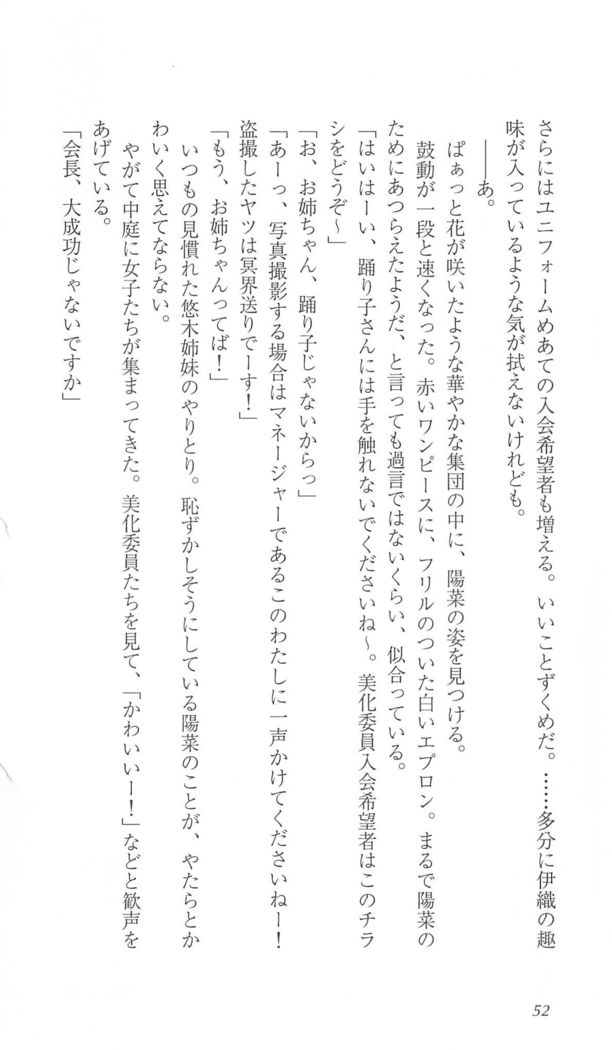 さらにはユニフォームめあての入会希望者も増える。いいことずくめだ。……多分に伊織の趣
味が入っているような気が拭えないけれども。
――あ。
ぱぁっと花が咲いたような華やかな集団の中に、陽菜の姿を見つける。
鼓動が一段と速くなった。赤いワンピースに、フリルのついた白いエプロン。まるで陽菜の
ためにあつらえたようだ、と言っても過言ではないくらい、似合っている。
「はいはーい、踊り子さんには手を触れないでくださいね～。美化委員入会希望者はこのチラ
シをどうぞ～」
「お、お姉ちゃん、踊り子じゃないからっ」
「あーっ、写真撮影する場合はマネージャーであるこのわたしに一声かけてくださいねー！
盗撮したヤツは冥界送りでーす！」
「もう、お姉ちゃんってば！」
いつもの見慣れた悠木姉妹のやりとり。恥ずかしそうにしている陽菜のことが、やたらとか
わいく思えてならない。
やがて中庭に女子たちが集まってきた。美化委員たちを見て、「かわいいー！」などと歓声を
あげている。
「会長、大成功じゃないですか」
52